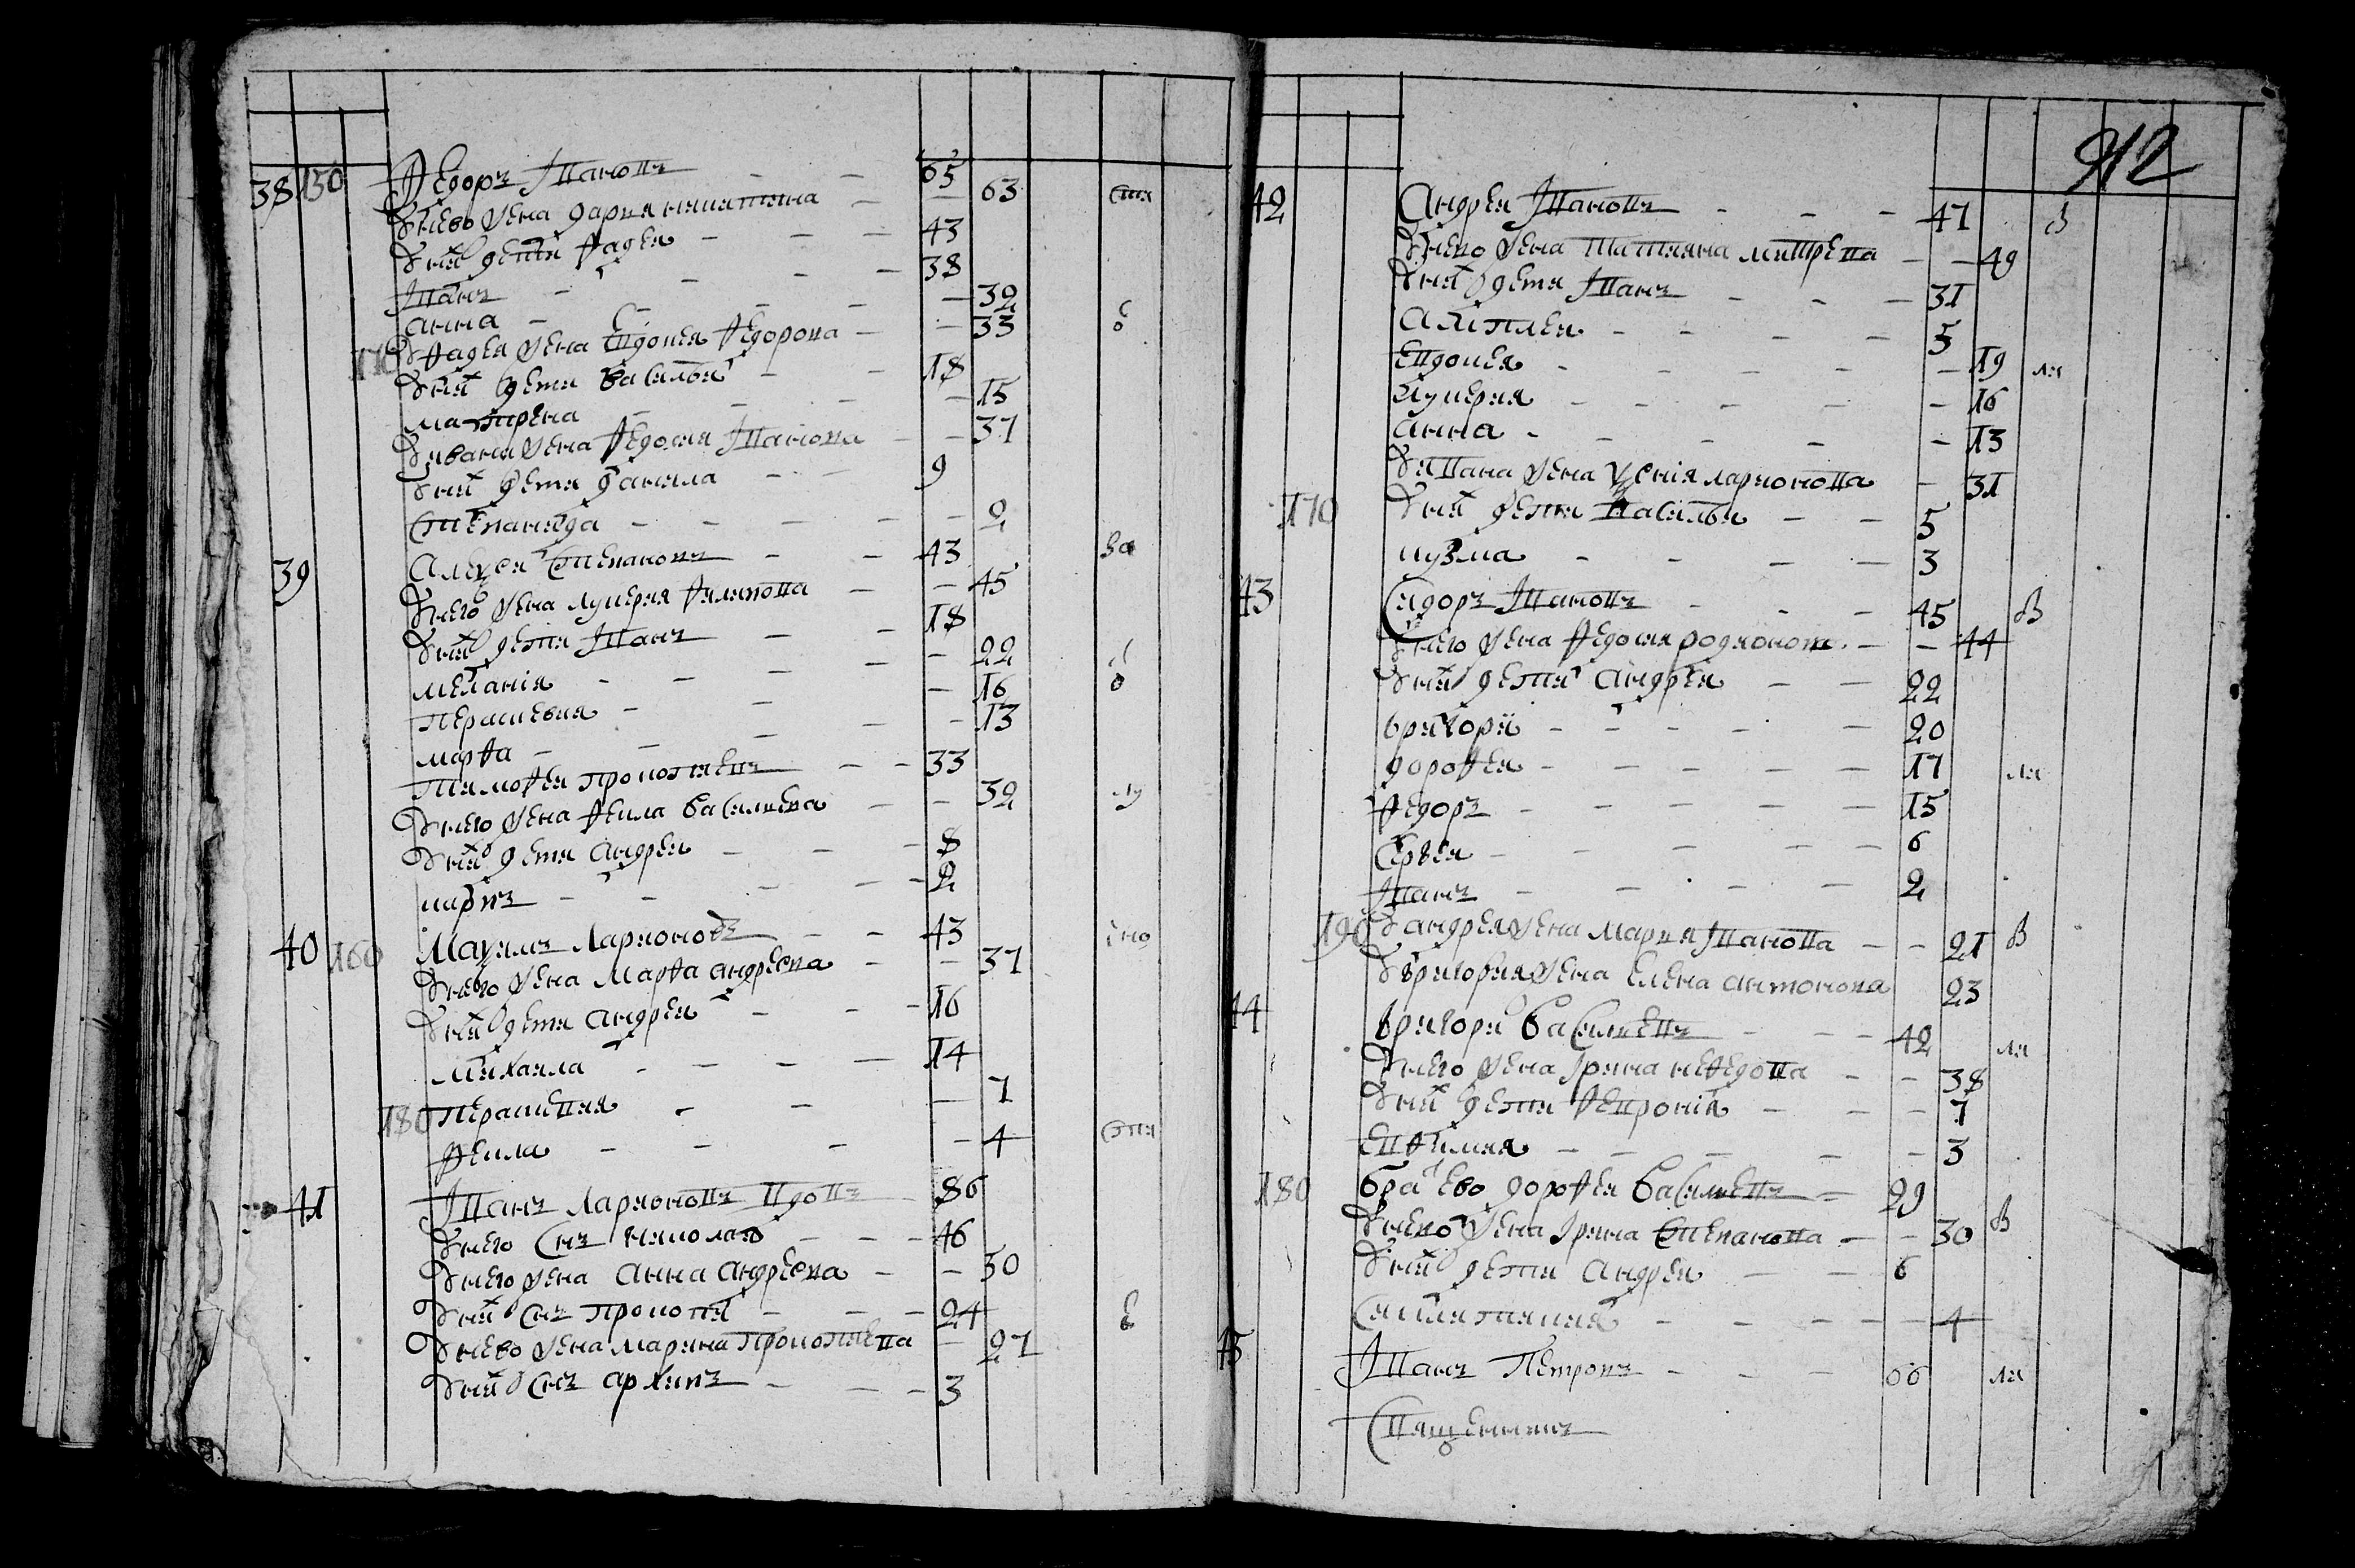 38 150 Федоръ Ивановъ 65
У нево жена Дарья Никитина 63
У них дети Фадей 43
Иванъ 38
Анна 32
170 У Фадея жена Евдокея Федорова 33
У них дети Василей 18
Матрена 15
У Ивана жена Федосия Иванова 37
У них дети Данила 9
Степанида 2
39 Алексей Степановъ 43
У него жена Лукерия Филипова 45
У них дети Иванъ 18
Мелания 22
Перасковия 16
Марфа 13
Тимофей Прокопиевъ 33
У него жена Фекла Василиева 32
У них дети Андрей 8
Карпъ 2
40 160 Максимъ Ларионовъ 43
У него жена Марфа Андреева 37
У них дети Андрей 16
Михаила 14
180 Пераскевия 7
Фекла 4
41 Иванъ Ларионовъ вдовъ 86
У него снъ Николай 46
У него жена Анна Андреева 50
У них снъ Прокопий 24
У нево жена Марина Прокопиева 27
У них снъ Архипъ 3
912
42 Андрей Ивановъ 47
У нево жена Татияна Митрева 49
У них дети Иванъ 31
Евдокея 19
Лукерия 16
Анна 13
У Ивана жена Ксения Ларионова 31
170 У них дети Василей 5
Кузма 3
43 Сидоръ Ивановъ 45
У него жена Федосия Родионова 44
У них дети Андрей 22
Григорий 20
Дорофей 17
Федоръ 15
Сергей 6
Иванъ 2
190 У Андрея жена Мария Иванова 21
У Григория жена Елена Антонова 23
44 Григорий Василиевъ 42
У него жена Ирина Нефедова 38
У них дети Феврония 7
Евфимия 3
180 Брат ево Дорофей Василиевъ 29
У нево жена Ирина Степанова 30
У них дети Андрей 6
4
45 Иванъ Петровъ 66
Священникъ